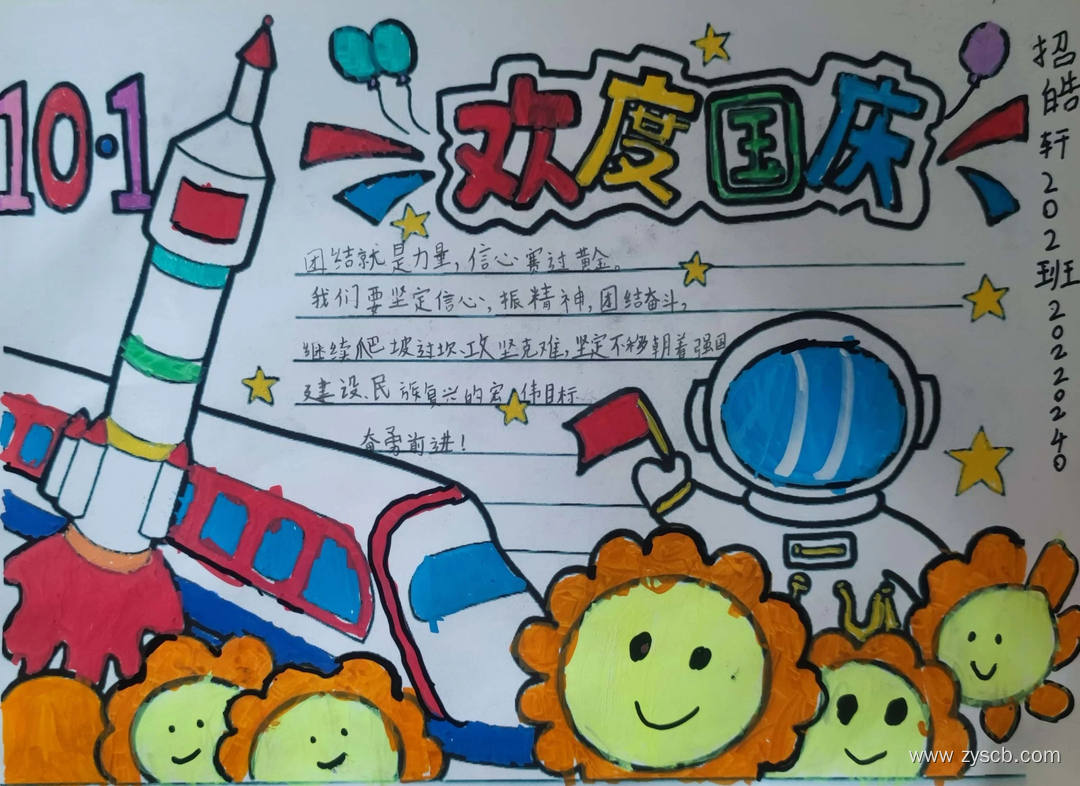 10·1
欢度国庆
团结就是力量，信心赛过黄金。
我们要坚定信心，振精神，团结奋斗，
继续爬坡过坎，攻坚克难，坚定不移朝着强国
建设、民族复兴的宏伟目标
奋勇前进！
招皓轩202班20220240
www.zyscb.com